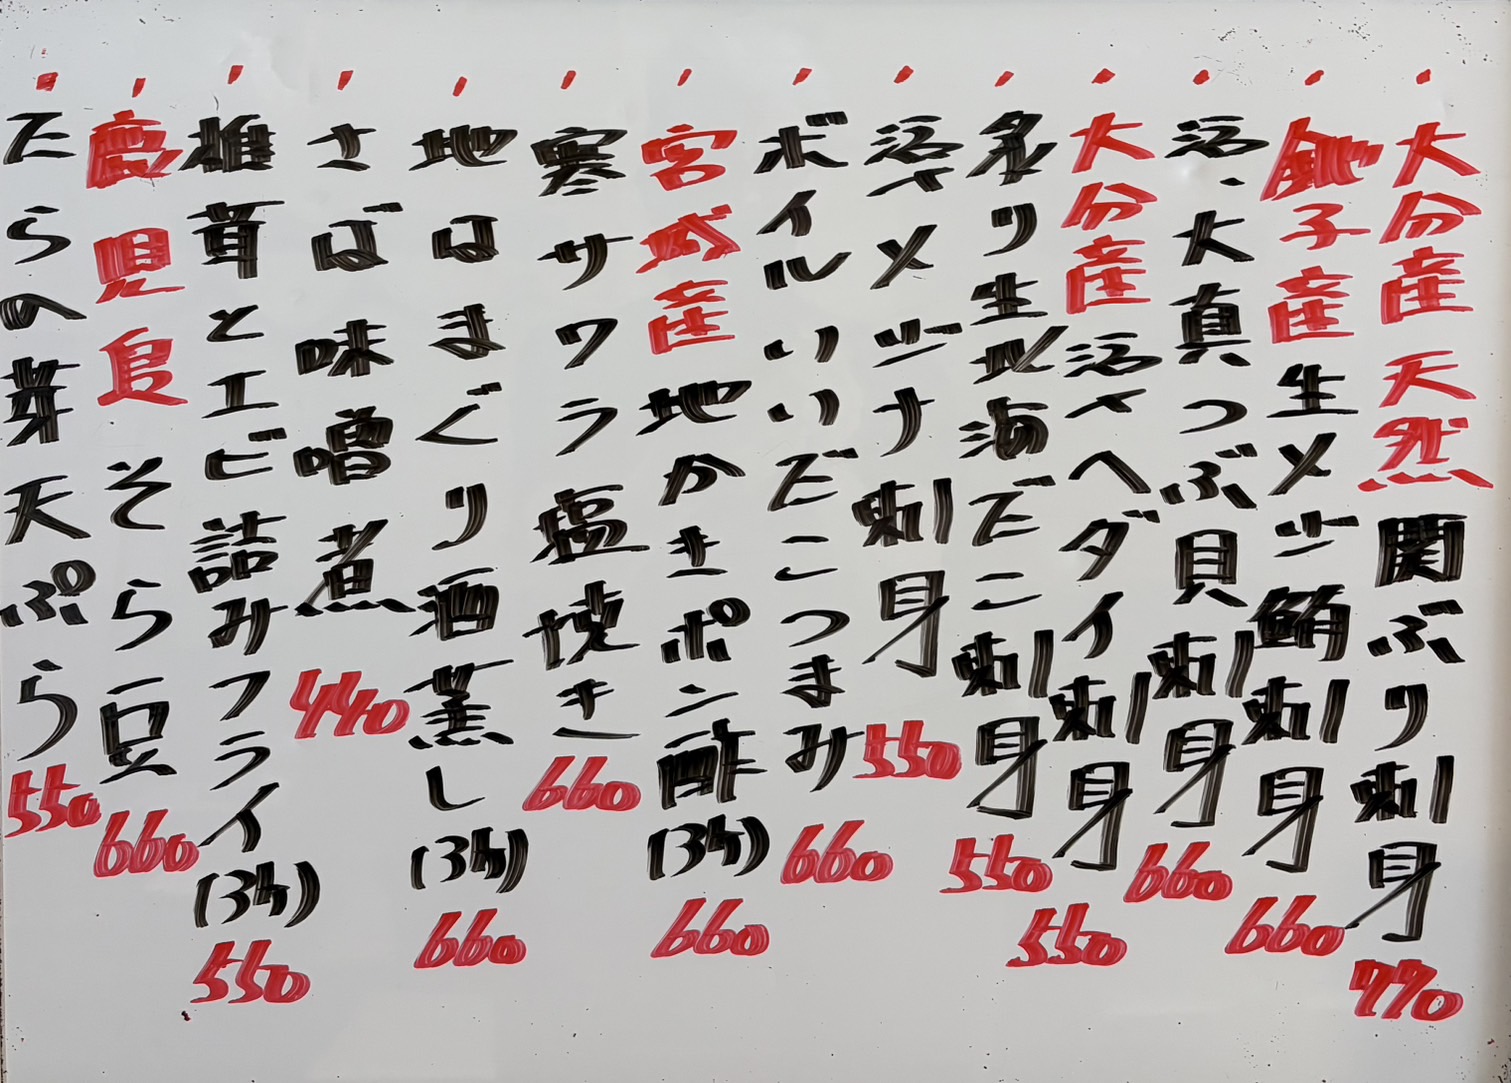 大分産 天然 関ぶり刺身 770
銚子産 生メジ鮪刺身 660
活・大真つぶ貝刺身 660
大分産 活〆ヘダイ刺身 550
炙り生北海だこ刺身 550
活〆メジナ刺身 550
ボイルいいだこつまみ 660
宮城産 地かきポン酢(3ケ) 660
寒サワラ塩焼き 660
地はまぐり酒蒸し(3ケ) 660
さば味噌煮 440
椎茸とエビ詰みフライ(3ケ) 550
鹿児島 そら豆 660
たらの芽天ぷら 550